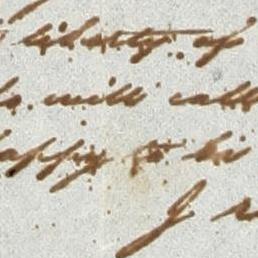 liberty of
will call
happy to be
I